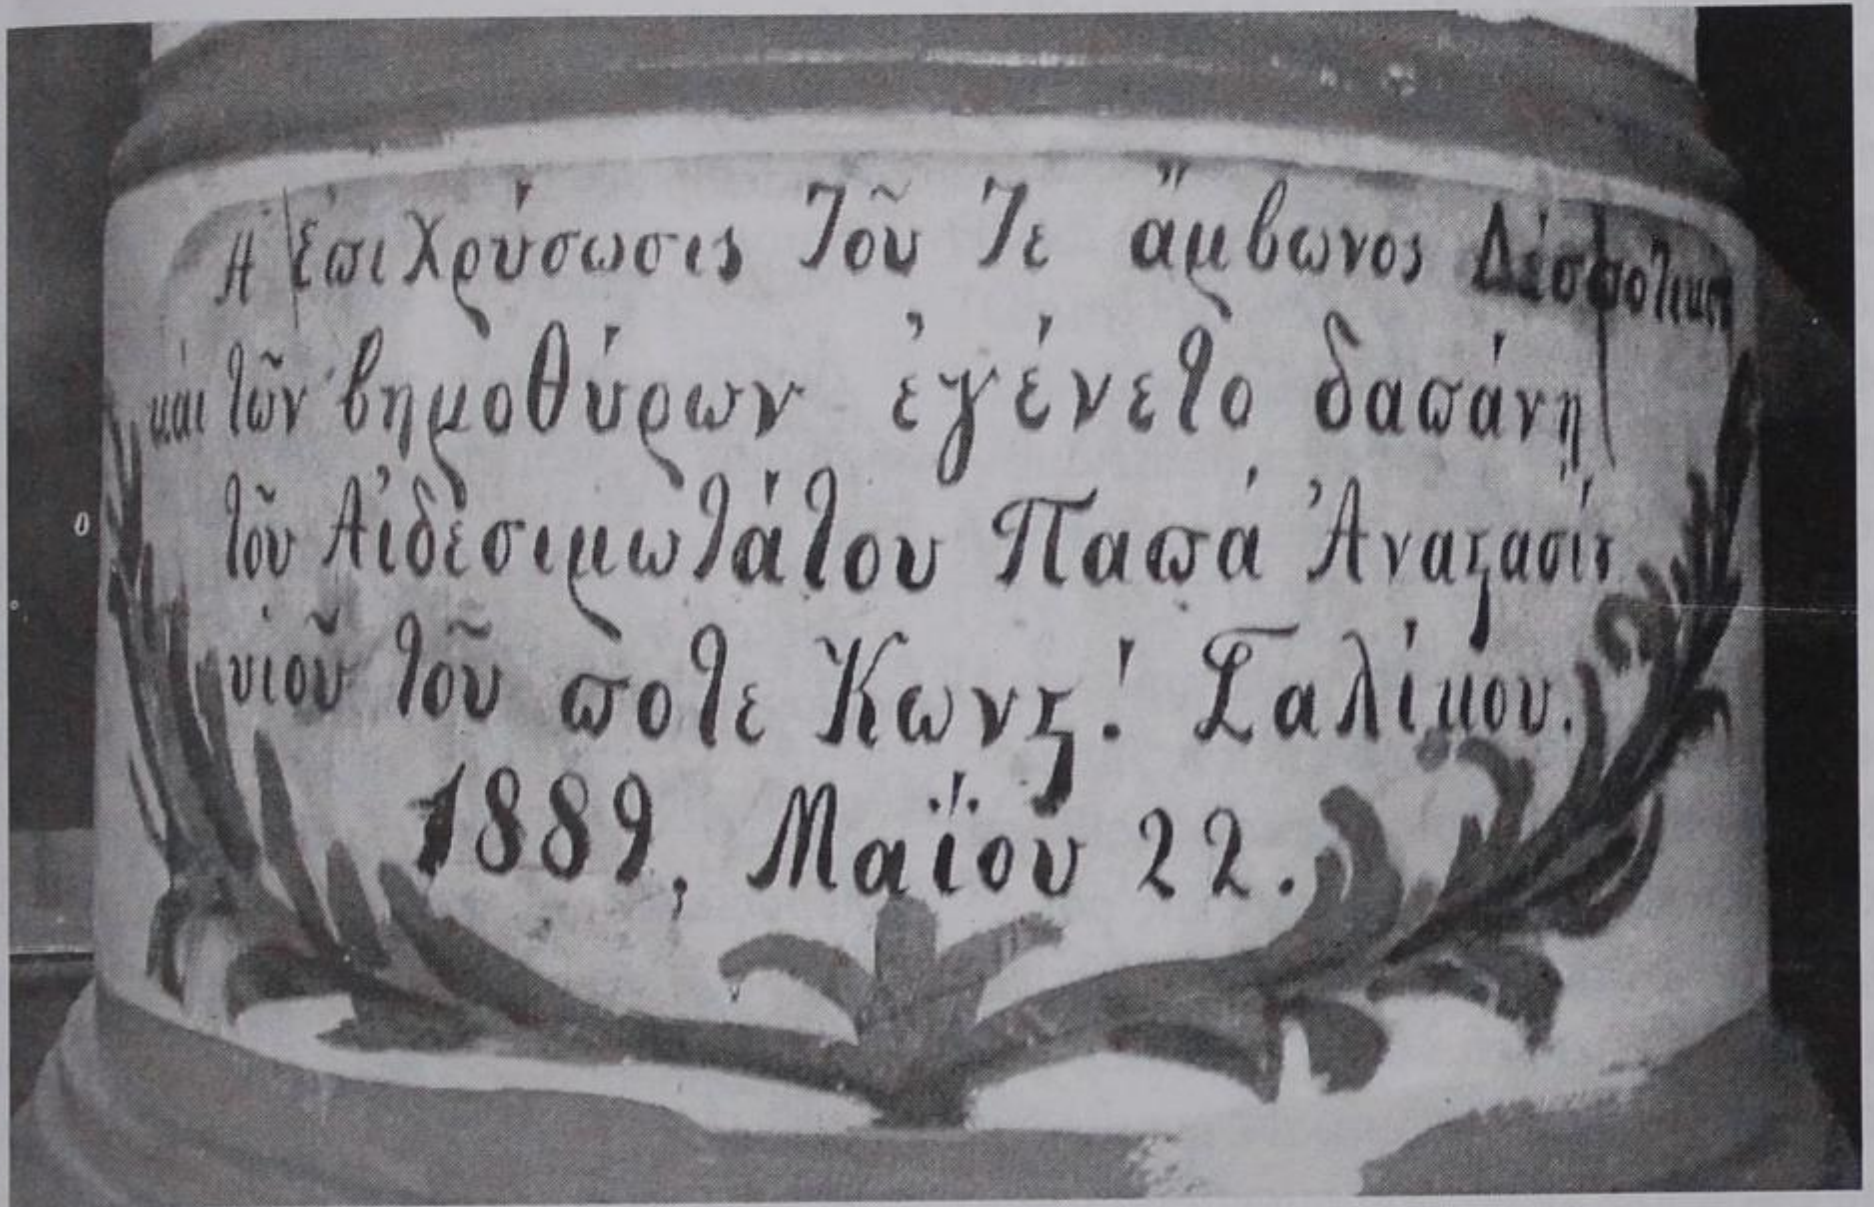 Η ἐπιχρύσωσις τοῦ τε ἄμβωνος Δεσποτικοῦ
καὶ τῶν βημοθύρων ἐγένετο δαπάνῃ
τοῦ Αἰδεσιμωτάτου Παπᾶ Ἀναϛασίȣ
υἱοῦ τοῦ ποτε Κωνϛ! Σαλίκου.
1889, Μαΐου 22.